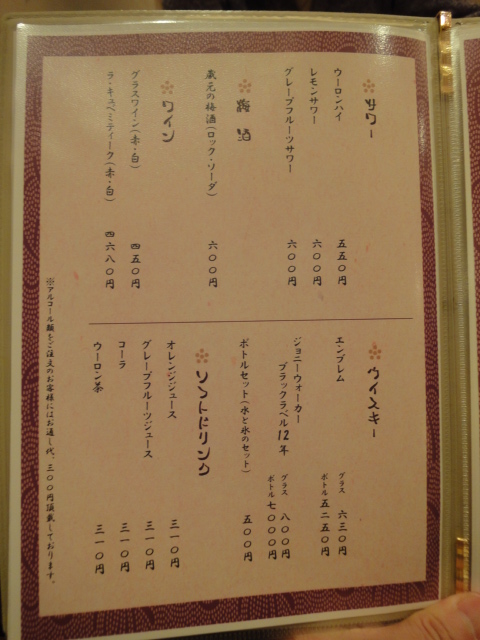 サワー
ウーロンハイ 五五〇円
レモンサワー 六〇〇円
グレープフルーツサワー 六〇〇円
梅酒
蔵元の梅酒(ロック・ソーダ) 六〇〇円
ワイン
グラスワイン(赤・白) 四五〇円
ラ・キュベミティーク(赤・白) 四六八〇円
ウイスキー
エンブレム グラス 六三〇円
ボトル 五二五〇円
ジョニーウォーカー
ブラックラベル12年 グラス 八〇〇円
ボトル 七〇〇〇円
ボトルセット(水と氷のセット) 五〇〇円
ソフトドリンク
オレンジジュース 三一〇円
グレープフルーツジュース 三一〇円
コーラ 三一〇円
ウーロン茶 三一〇円
※アルコール類をご注文のお客様にはお通し代、三〇〇円頂戴しております。